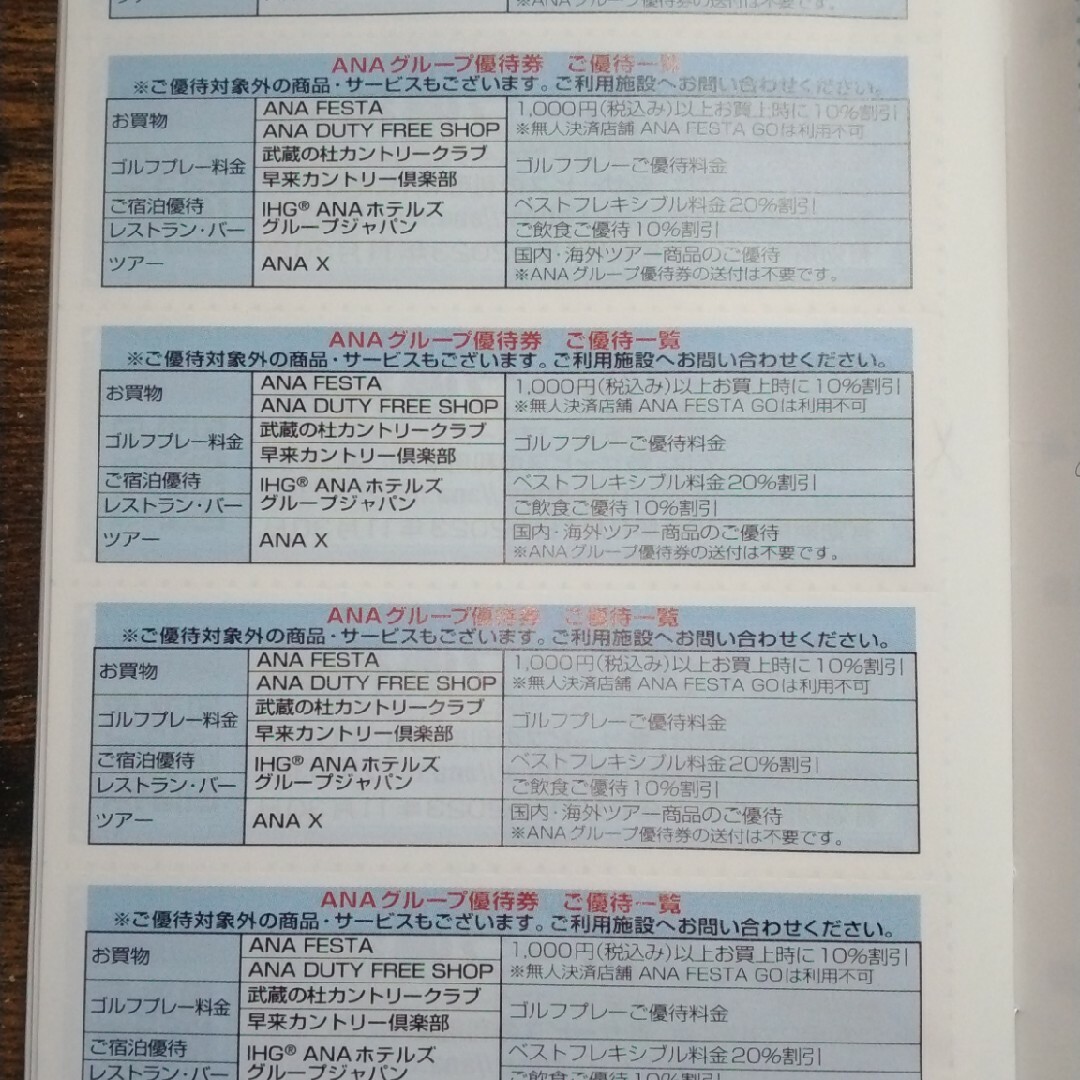 ※ANAグループ優待券の送付は不要です。
ANAグループ優待券 ご優待一覧
※ご優待対象外の商品・サービスもございます。ご利用施設へお問い合わせください。
お買物
ANA FESTA
ANA DUTY FREE SHOP
1,000円(税込み)以上お買上時に10%割引
※無人決済店舗 ANA FESTA GOは利用不可
ゴルフプレー料金
武蔵の杜カントリークラブ
早来カントリー倶楽部
ゴルフプレーご優待料金
ご宿泊優待
レストラン・バー
IHG® ANAホテルズ
グループジャパン
ベストフレキシブル料金20%割引
ご飲食ご優待10%割引
ツアー
ANA X
国内・海外ツアー商品のご優待
※ANAグループ優待券の送付は不要です。
ANAグループ優待券 ご優待一覧
※ご優待対象外の商品・サービスもございます。ご利用施設へお問い合わせください。
お買物
ANA FESTA
ANA DUTY FREE SHOP
1,000円(税込み)以上お買上時に10%割引
※無人決済店舗 ANA FESTA GOは利用不可
ゴルフプレー料金
武蔵の杜カントリークラブ
早来カントリー倶楽部
ゴルフプレーご優待料金
ご宿泊優待
レストラン・バー
IHG® ANAホテルズ
グループジャパン
ベストフレキシブル料金20%割引
ご飲食ご優待10%割引
ツアー
ANA X
国内・海外ツアー商品のご優待
※ANAグループ優待券の送付は不要です。
ANAグループ優待券 ご優待一覧
※ご優待対象外の商品・サービスもございます。ご利用施設へお問い合わせください。
お買物
ANA FESTA
ANA DUTY FREE SHOP
1,000円(税込み)以上お買上時に10%割引
※無人決済店舗 ANA FESTA GOは利用不可
ゴルフプレー料金
武蔵の杜カントリークラブ
早来カントリー倶楽部
ゴルフプレーご優待料金
ご宿泊優待
レストラン・バー
IHG® ANAホテルズ
グループジャパン
ベストフレキシブル料金20%割引
ご飲食ご優待10%割引
ツアー
ANA X
国内・海外ツアー商品のご優待
※ANAグループ優待券の送付は不要です。
ANAグループ優待券 ご優待一覧
※ご優待対象外の商品・サービスもございます。ご利用施設へお問い合わせください。
お買物
ANA FESTA
ANA DUTY FREE SHOP
1,000円(税込み)以上お買上時に10%割引
※無人決済店舗 ANA FESTA GOは利用不可
ゴルフプレー料金
武蔵の杜カントリークラブ
早来カントリー倶楽部
ゴルフプレーご優待料金
ご宿泊優待
レストラン・バー
IHG® ANAホテルズ
グループジャパン
ベストフレキシブル料金20%割引
ご飲食ご優待10%割引